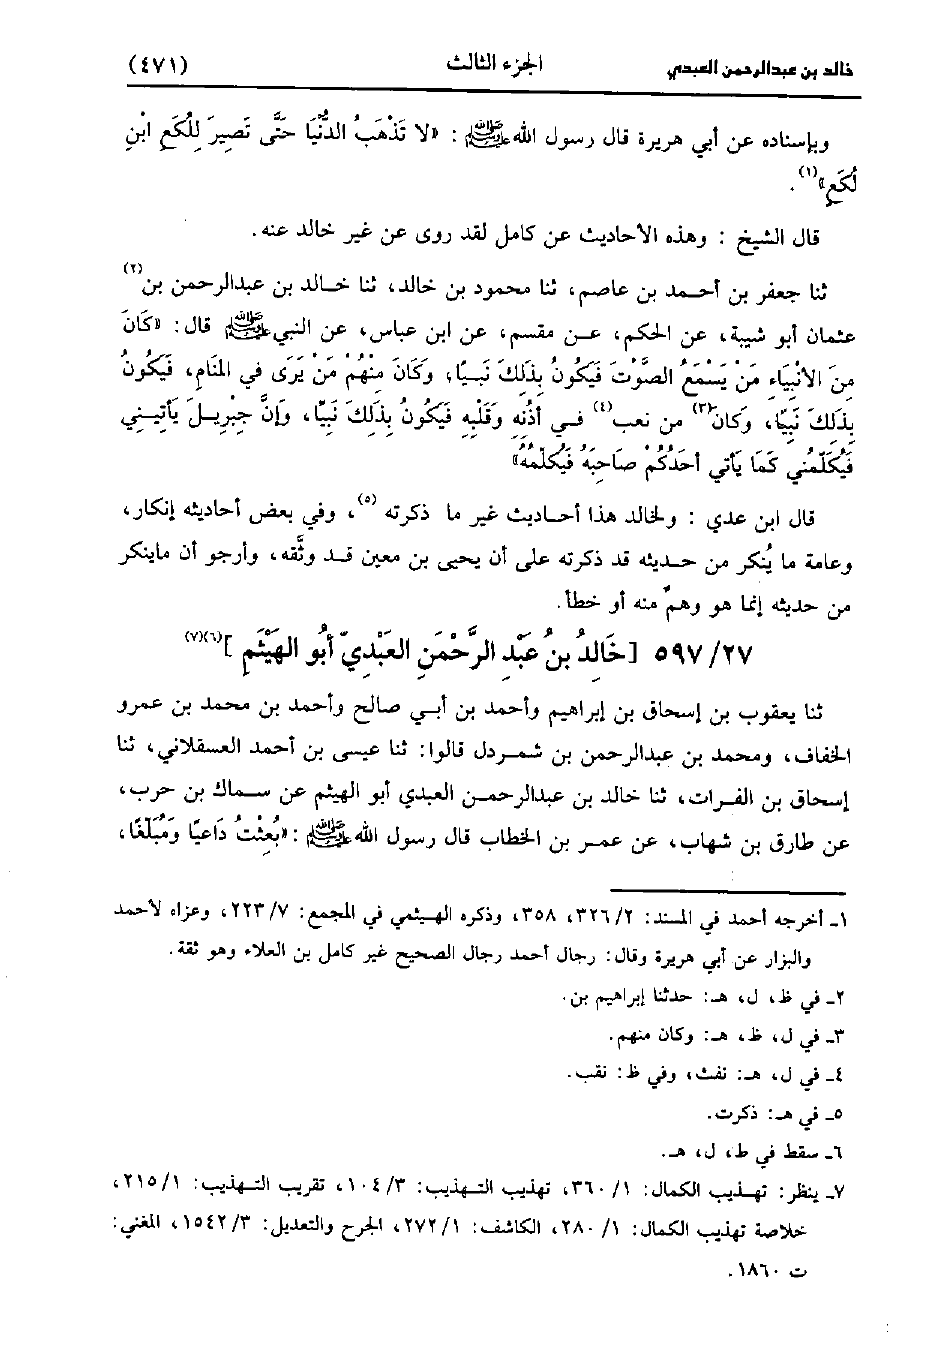 خالد بن عبدالرحمن العبدي الجزء الثالث (٤٧١)
وبإسناده عن أبي هريرة قال رسول الله ﷺ : «لا تَذْهَبُ الدُّنْيَا حَتَّى تَصِيرَ لِلُكَعِ ابْنِ
لُكَعٍ»(١).
قال الشيخ : وهذه الأحاديث عن كامل لقد روى عن غير خالد عنه.
ثنا جعفر بن أحمد بن عاصم، ثنا محمود بن خالد، ثنا خالد بن عبدالرحمن بن(٢)
عثمان أبو شيبة، عن الحكم، عن مقسم، عن ابن عباس، عن النبي ﷺ قال: «كَانَ
مِنَ الأنْبِيَاءِ مَنْ يَسْمَعُ الصَّوْتَ فَيَكُونُ بِذَلِكَ نَبِيًّا، وَكَانَ مِنْهُمْ مَنْ يَرَى في المَنَامِ، فَيَكُونُ
بِذَلِكَ نَبِيًّا، وَكَانَ(٣) من نعب(٤) فِي أُذُنِهِ وَقَلْبِهِ فَيَكُونُ بِذَلِكَ نَبِيًّا، وَإِنَّ جِبْرِيلَ يَأْتِينِي
فَيُكَلِّمُنِي كَمَا يَأْتِي أَحَدُكُمْ صَاحِبَهُ فَيُكَلِّمُهُ»
قال ابن عدي : ولخالد هذا أحاديث غير ما ذكرته (٥)، وفي بعض أحاديثه إنكار،
وعامة ما يُنكر من حديثه قد ذكرته على أن يحيى بن معين قد وثَّقه، وأرجو أن ماينكر
من حديثه إنما هو وهمٌ منه أو خطأ.
٢٧/ ٥٩٧ [خَالِدُ بنُ عَبْدِ الرَّحْمَنِ العَبْدِيّ أَبُو الهَيْثَمِ ](٦)(٧)
ثنا يعقوب بن إسحاق بن إبراهيم وأحمد بن أبي صالح وأحمد بن محمد بن عمرو
الخفاف، ومحمد بن عبدالرحمن بن شمردل قالوا: ثنا عيسى بن أحمد العسقلاني، ثنا
إسحاق بن الفرات، ثنا خالد بن عبدالرحمن العبدي أبو الهيثم عن سماك بن حرب،
عن طارق بن شهاب، عن عمر بن الخطاب قال رسول الله ﷺ :«بُعِثْتُ دَاعِيًا وَمُبَلِّغًا،
١ـ أخرجه أحمد في المسند: ٢/ ٣٢٦، ٣٥٨، وذكره الهيثمي في المجمع: ٧/ ٢٢٣، وعزاه لأحمد
والبزار عن أبي هريرة وقال: رجال أحمد رجال الصحيح غير كامل بن العلاء وهو ثقة.
٢ـ في ظ، ل، هـ: حدثنا إبراهيم بن.
٣ـ في ل، ظ، هـ: وكان منهم.
٤ـ في ل، هـ: نفث، وفي ظ: نقب.
٥ـ في هـ: ذكرت.
٦ـ سقط في ط، ل، هـ.
٧ـ ينظر: تهذيب الكمال: ١/ ٣٦٠، تهذيب التهذيب: ٣/ ١٠٤، تقريب التهذيب: ١/ ٢١٥،
خلاصة تهذيب الكمال: ١/ ٢٨٠، الكاشف: ١/ ٢٧٢، الجرح والتعديل: ٣/ ١٥٤٢، المغني:
ت ١٨٦٠.